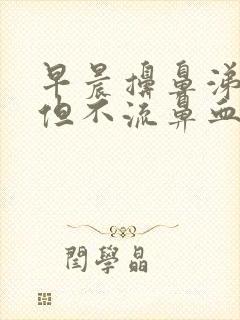 早晨擤鼻涕
但不流鼻血
閆學晶